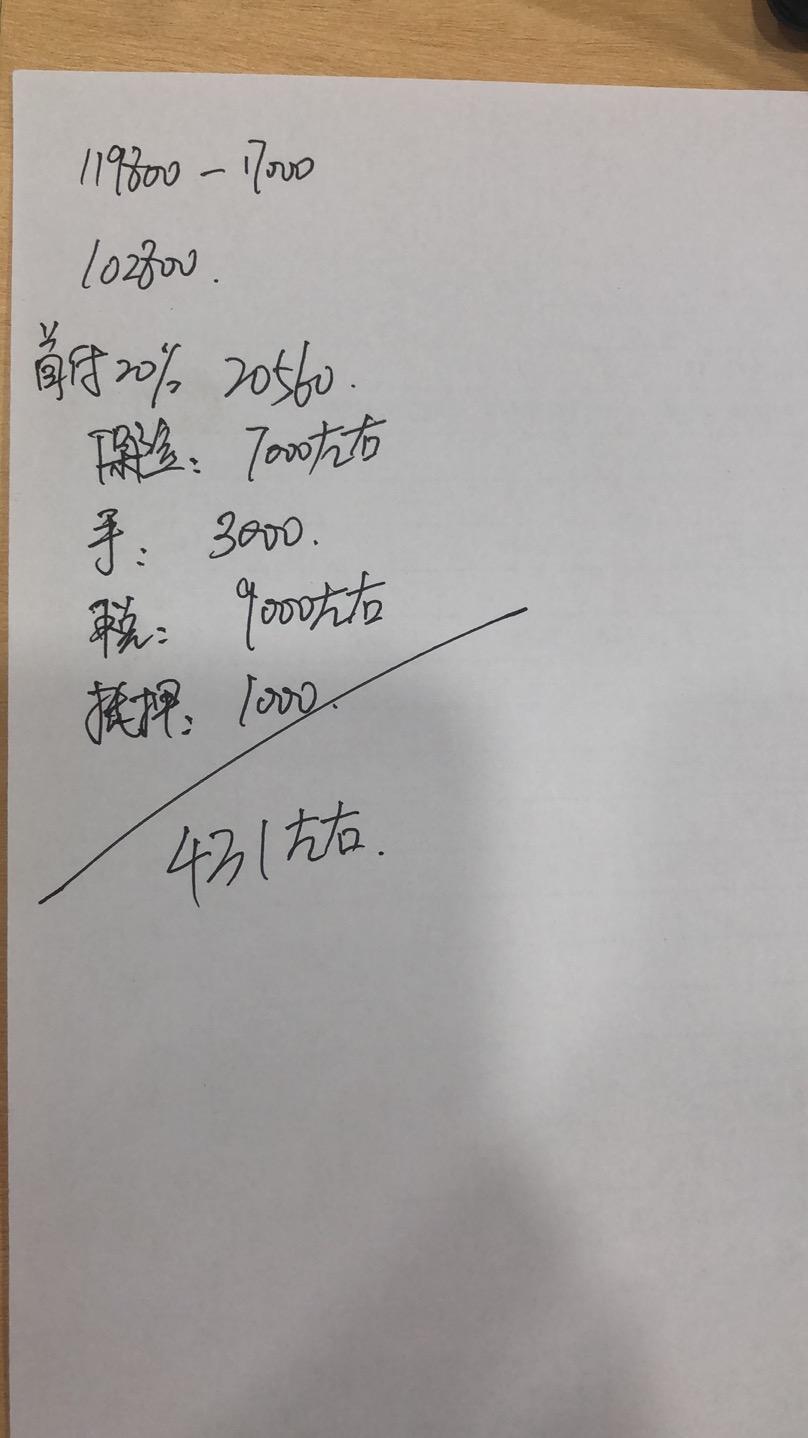 119800 - 17000
102800.
首付20% 20560.
保险: 7000左右
手: 3000.
税: 9000左右
抵押: 1000.
431左右.